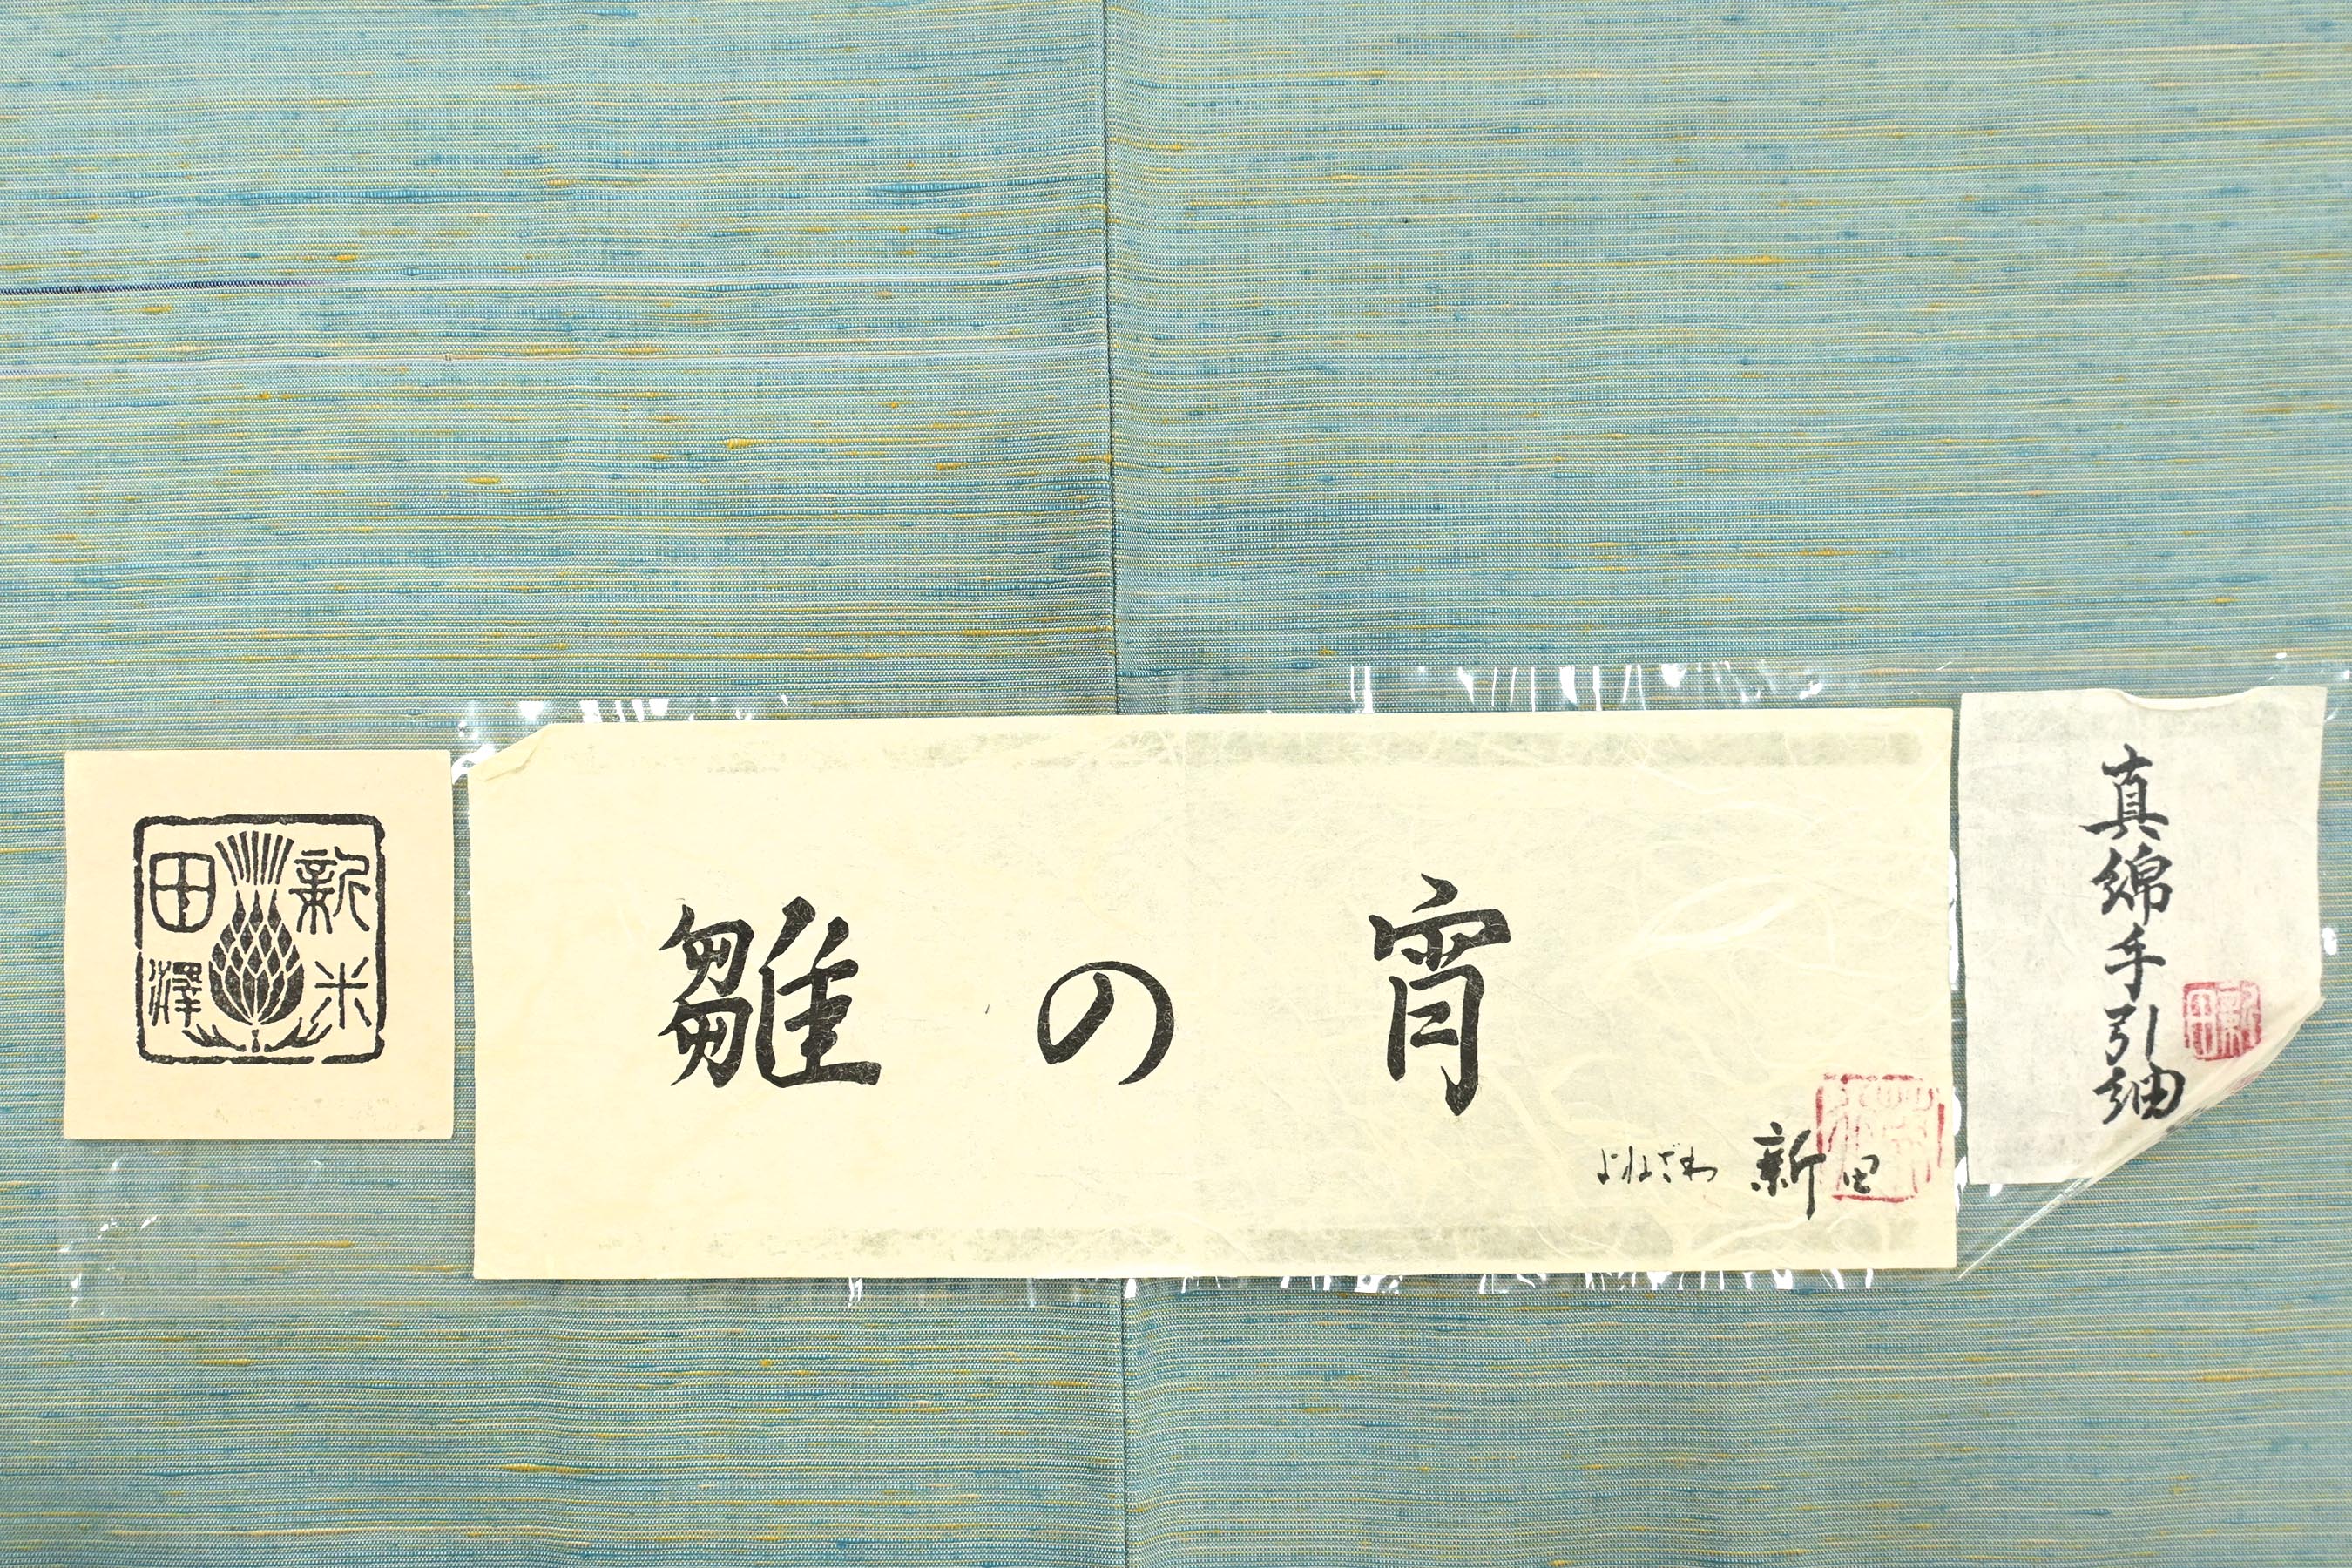 米澤
新田
雛の宵
よねざわ 新田
真綿手引紬
新田